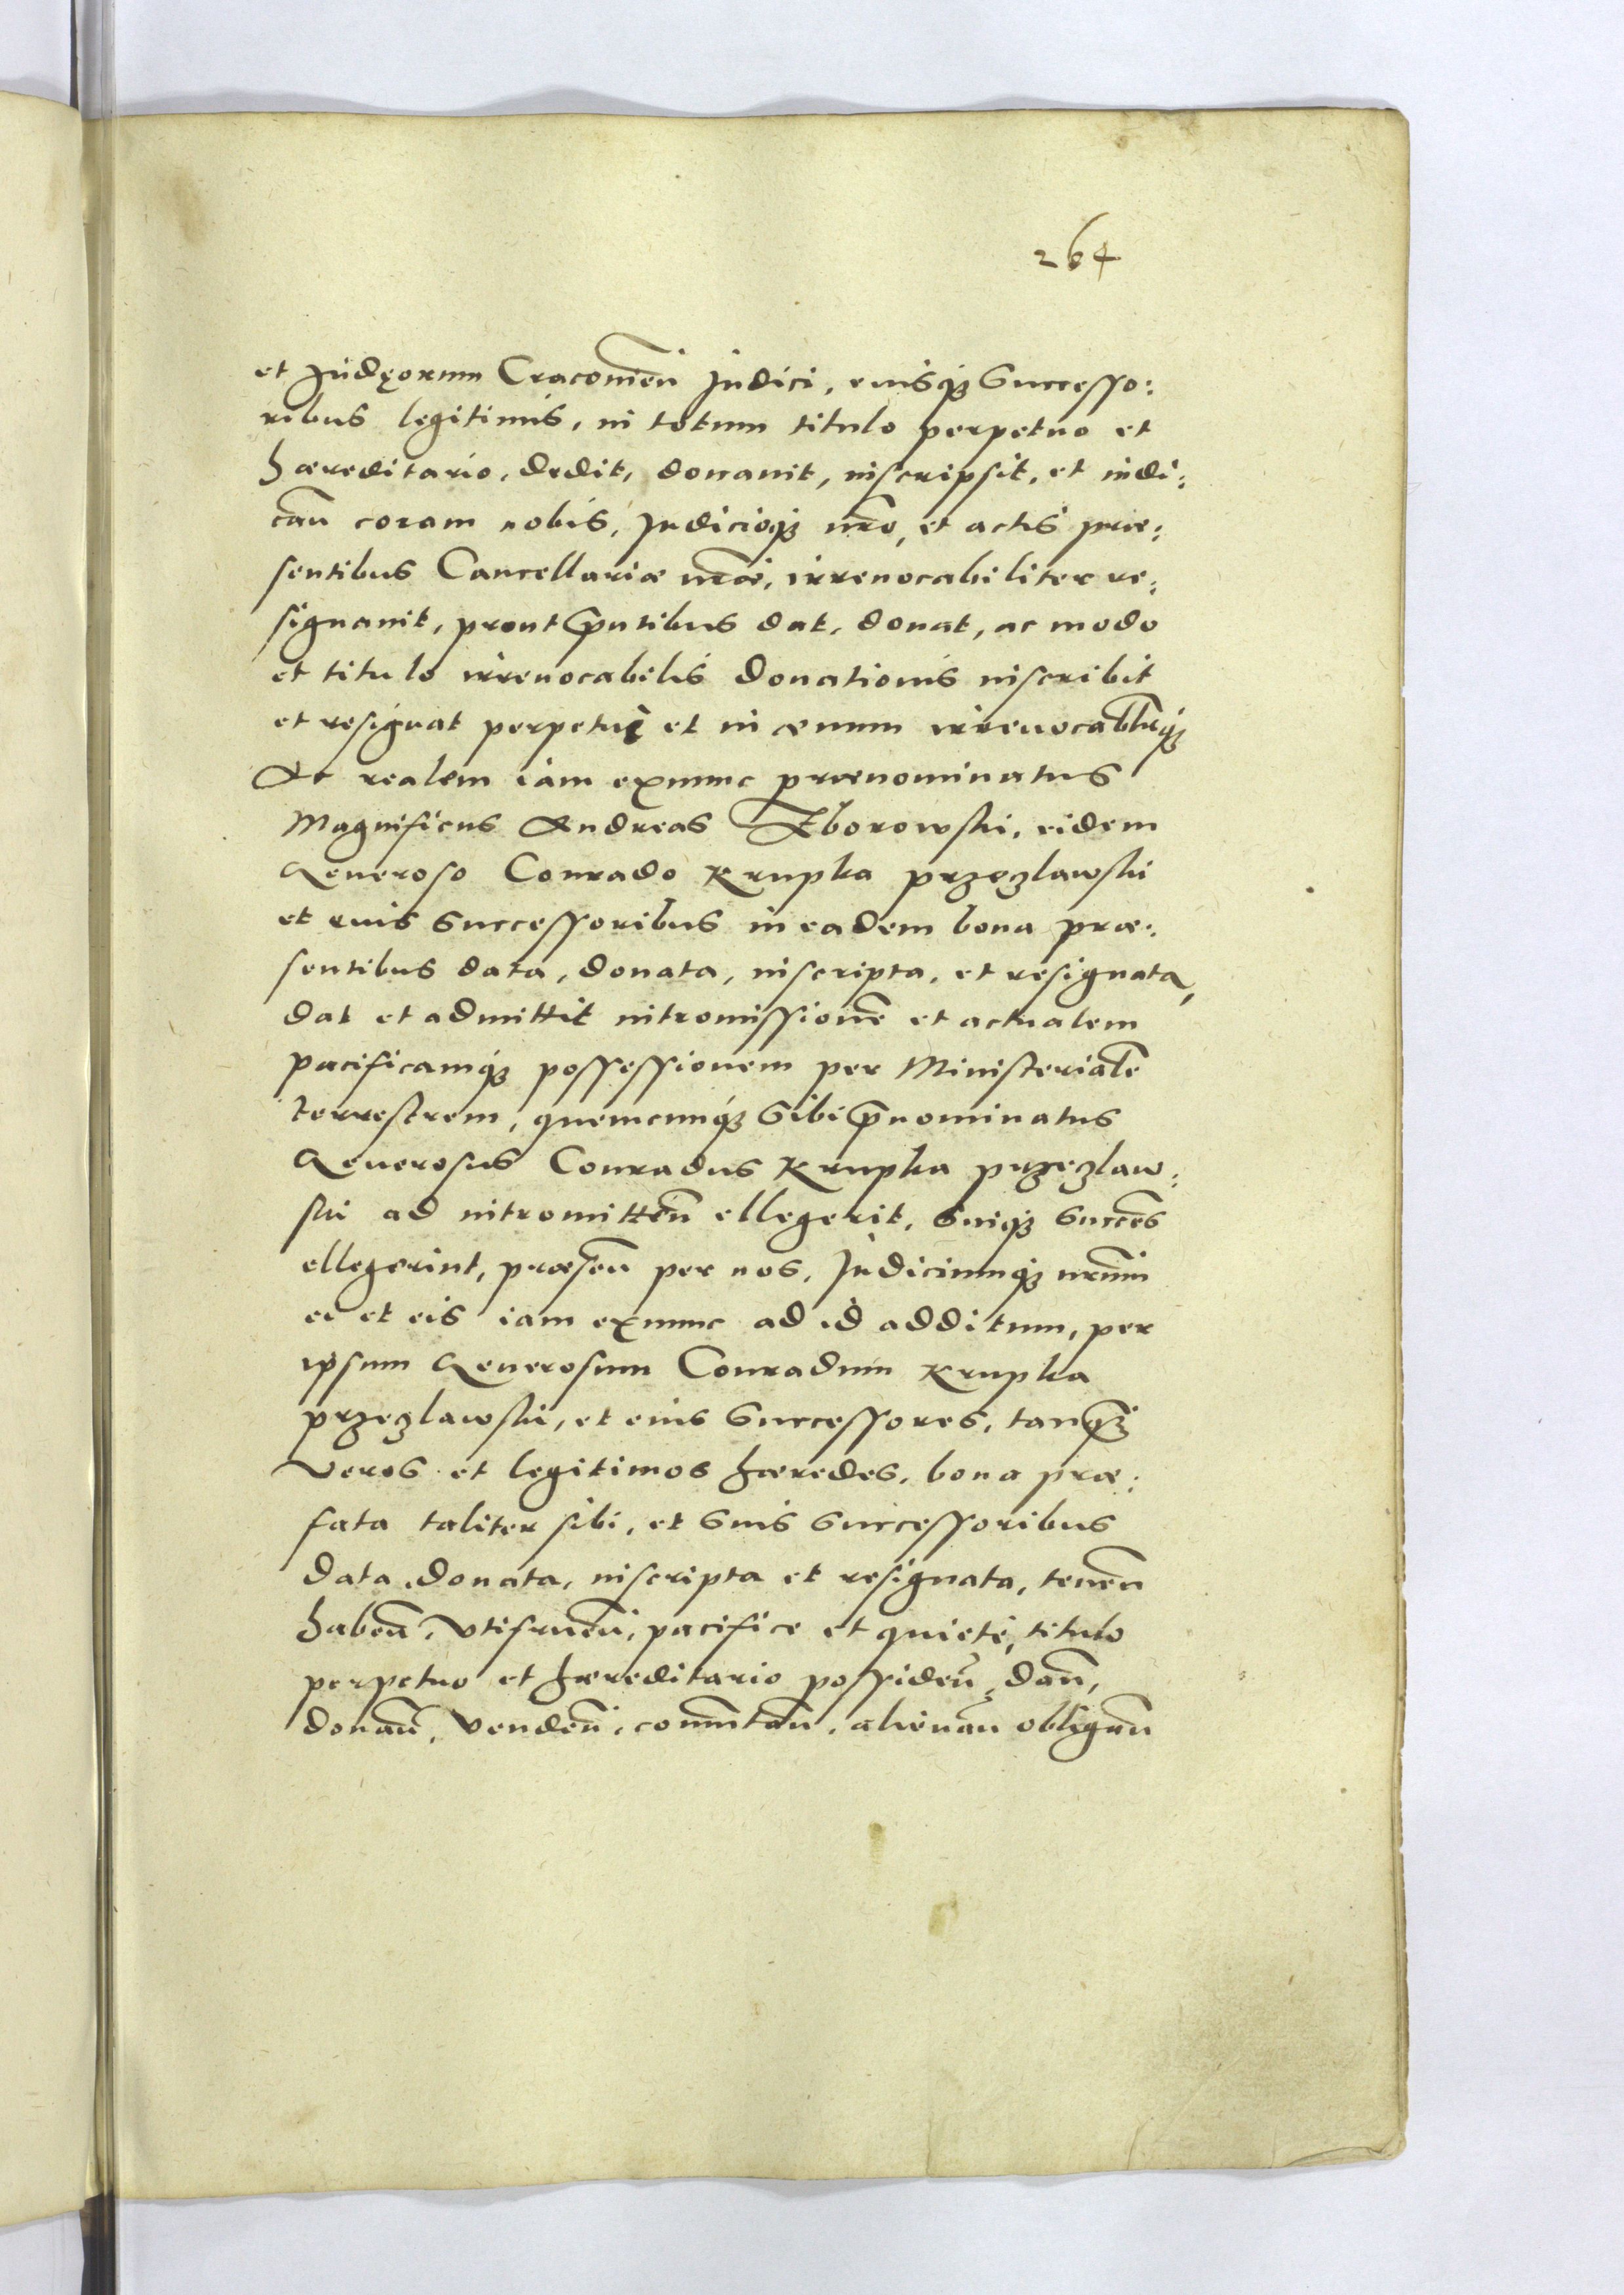 264
et Judęorum Cracovieñ Judici, eiusq₃ Successo:
ribus legitimis, in totum titulo perpetuo et
hæreditario, dedit, donauit, inscripsit, et indi:
cañ coram nobis, Judicioq₃ nr̃o, et actis præ:
sentibus Cancellariæ nr̃æ, irreuocabiliter re:
signauit, prout p̃ntibus dat, donat, ac modo
et titulo irreuocabilis donationis inscribit
et resignat perpetuè et in æuum irreuocabłrq₃
Ac realem iam exnunc prænominatus
Magnificus Andreas Zborowski, eidem
Generoso Conrado Krupka przezlawski
et euis Successoribus in eadem bona præ:
sentibus data, donata, inscripta, et resignata,
dat et admittit intromissionẽ et actualem
pacificamq₃ possessionem per Ministerialẽ
terrestrem, quemcunq₃ Sibi p̃nominatus
Generosus Conradus Krupka przezlaw:
ski ad intromitteñ ellegerit, Suiq₃ Succẽs
ellegerint, præseñ per nos, Judiciumq₃ nr̃um
ei et eis iam exnunc ad id additum, per
ipsum Generosum Conradum Krupka
przezlawski, et eius Successores, tanq̃₃
Veros et legitimos hæredes, bona præ:
fata taliter sibi, et Suis Successoribus
data, donata, inscripta et resignata, teneñ
habeñ, Vtifrueñ, pacifice et quietè, titulo
perpetuo et hæreditario possideñ, dañ,
donañ, Vendeñ, com̃utañ, alienañ obligañ